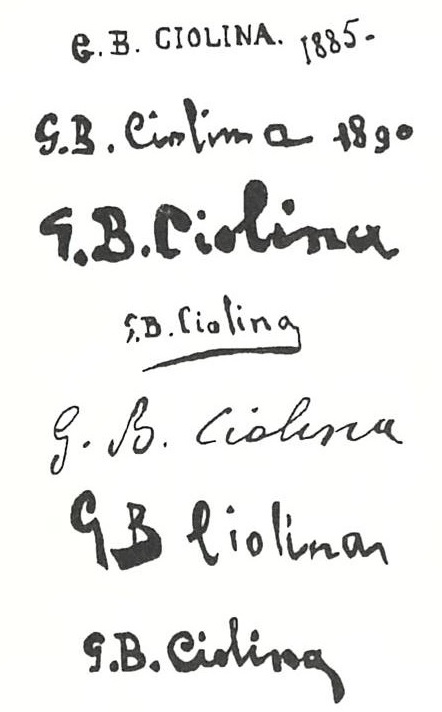 G. B. CIOLINA. 1885-
G.B. Ciolina 1890
G.B. Ciolina
G.B. Ciolina
G. B. Ciolina
G B Ciolina
G.B. Ciolina